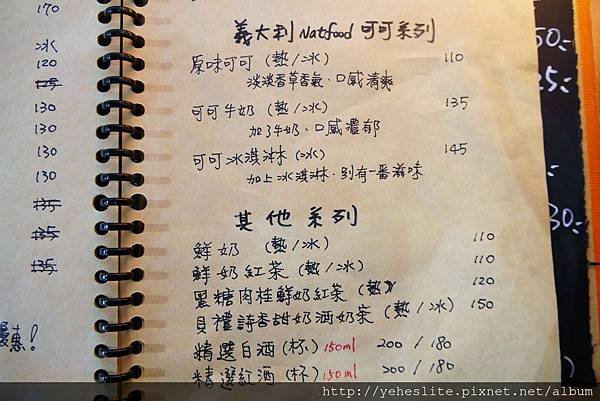 170
冰
120
125
130
130
130
130
135
135
135
優惠!
義大利 Natfood 可可系列
原味可可 (熱/冰) 110
淡淡香草香氣、口感清爽
可可牛奶 (熱/冰) 135
加了牛奶、口感濃郁
可可冰淇淋 (冰) 145
加上冰淇淋、別有一番滋味
其他系列
鮮奶 (熱/冰) 110
鮮奶紅茶 (熱/冰) 110
黑糖肉桂鮮奶紅茶 (熱) 120
貝禮詩香甜奶酒奶茶 (熱/冰) 150
精選白酒 (杯) 150ml 200 / 180
精選紅酒 (杯) 150ml 200 / 180
50.-
25.-
30.-
http://yeheslite.pixnet.net/album